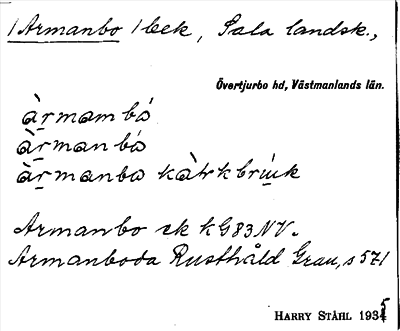 /Armanbo / bek, Sala landsk.,
Övertjurbo hd, Västmanlands län.
àrmam bó
àrman bó
àrmanbo kàrkbrink
Armanbo ek k G83 NV.
Armanboda Rusthåld Grau, s 571
HARRY STÅHL 1935